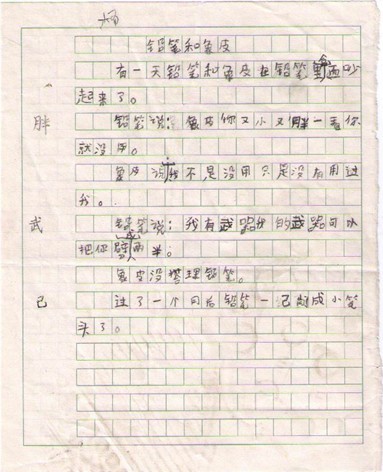 铅笔和象皮
有一天铅笔和象皮在铅笔盒里面吵
起来了。
铅笔说：象皮你又小又胖一看你
就没用。
象皮说我不是没用只是没有用过
我。
铅笔说：我有武器我的武器可以
把你成两半。
象皮没理铅笔。
过了一个月后铅笔一己成小笔
头了。
胖
武
己